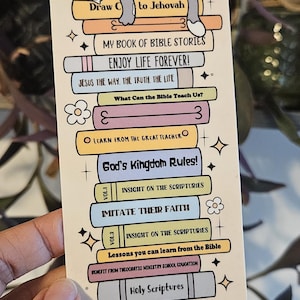 Draw C to Jehovah
MY BOOK OF BIBLE STORIES
ENJOY LIFE FOREVER!
JESUS THE WAY, THE TRUTH, THE LIFE
What Can the Bible Teach Us?
LEARN FROM THE GREAT TEACHER
God's Kingdom Rules!
VOL.2 INSIGHT ON THE SCRIPTURES
IMITATE THEIR FAITH
VOL.1 INSIGHT ON THE SCRIPTURES
Lessons you can learn from the Bible
BENEFIT FROM THEOCRATIC MINISTRY SCHOOL EDUCATION
Holy Scriptures